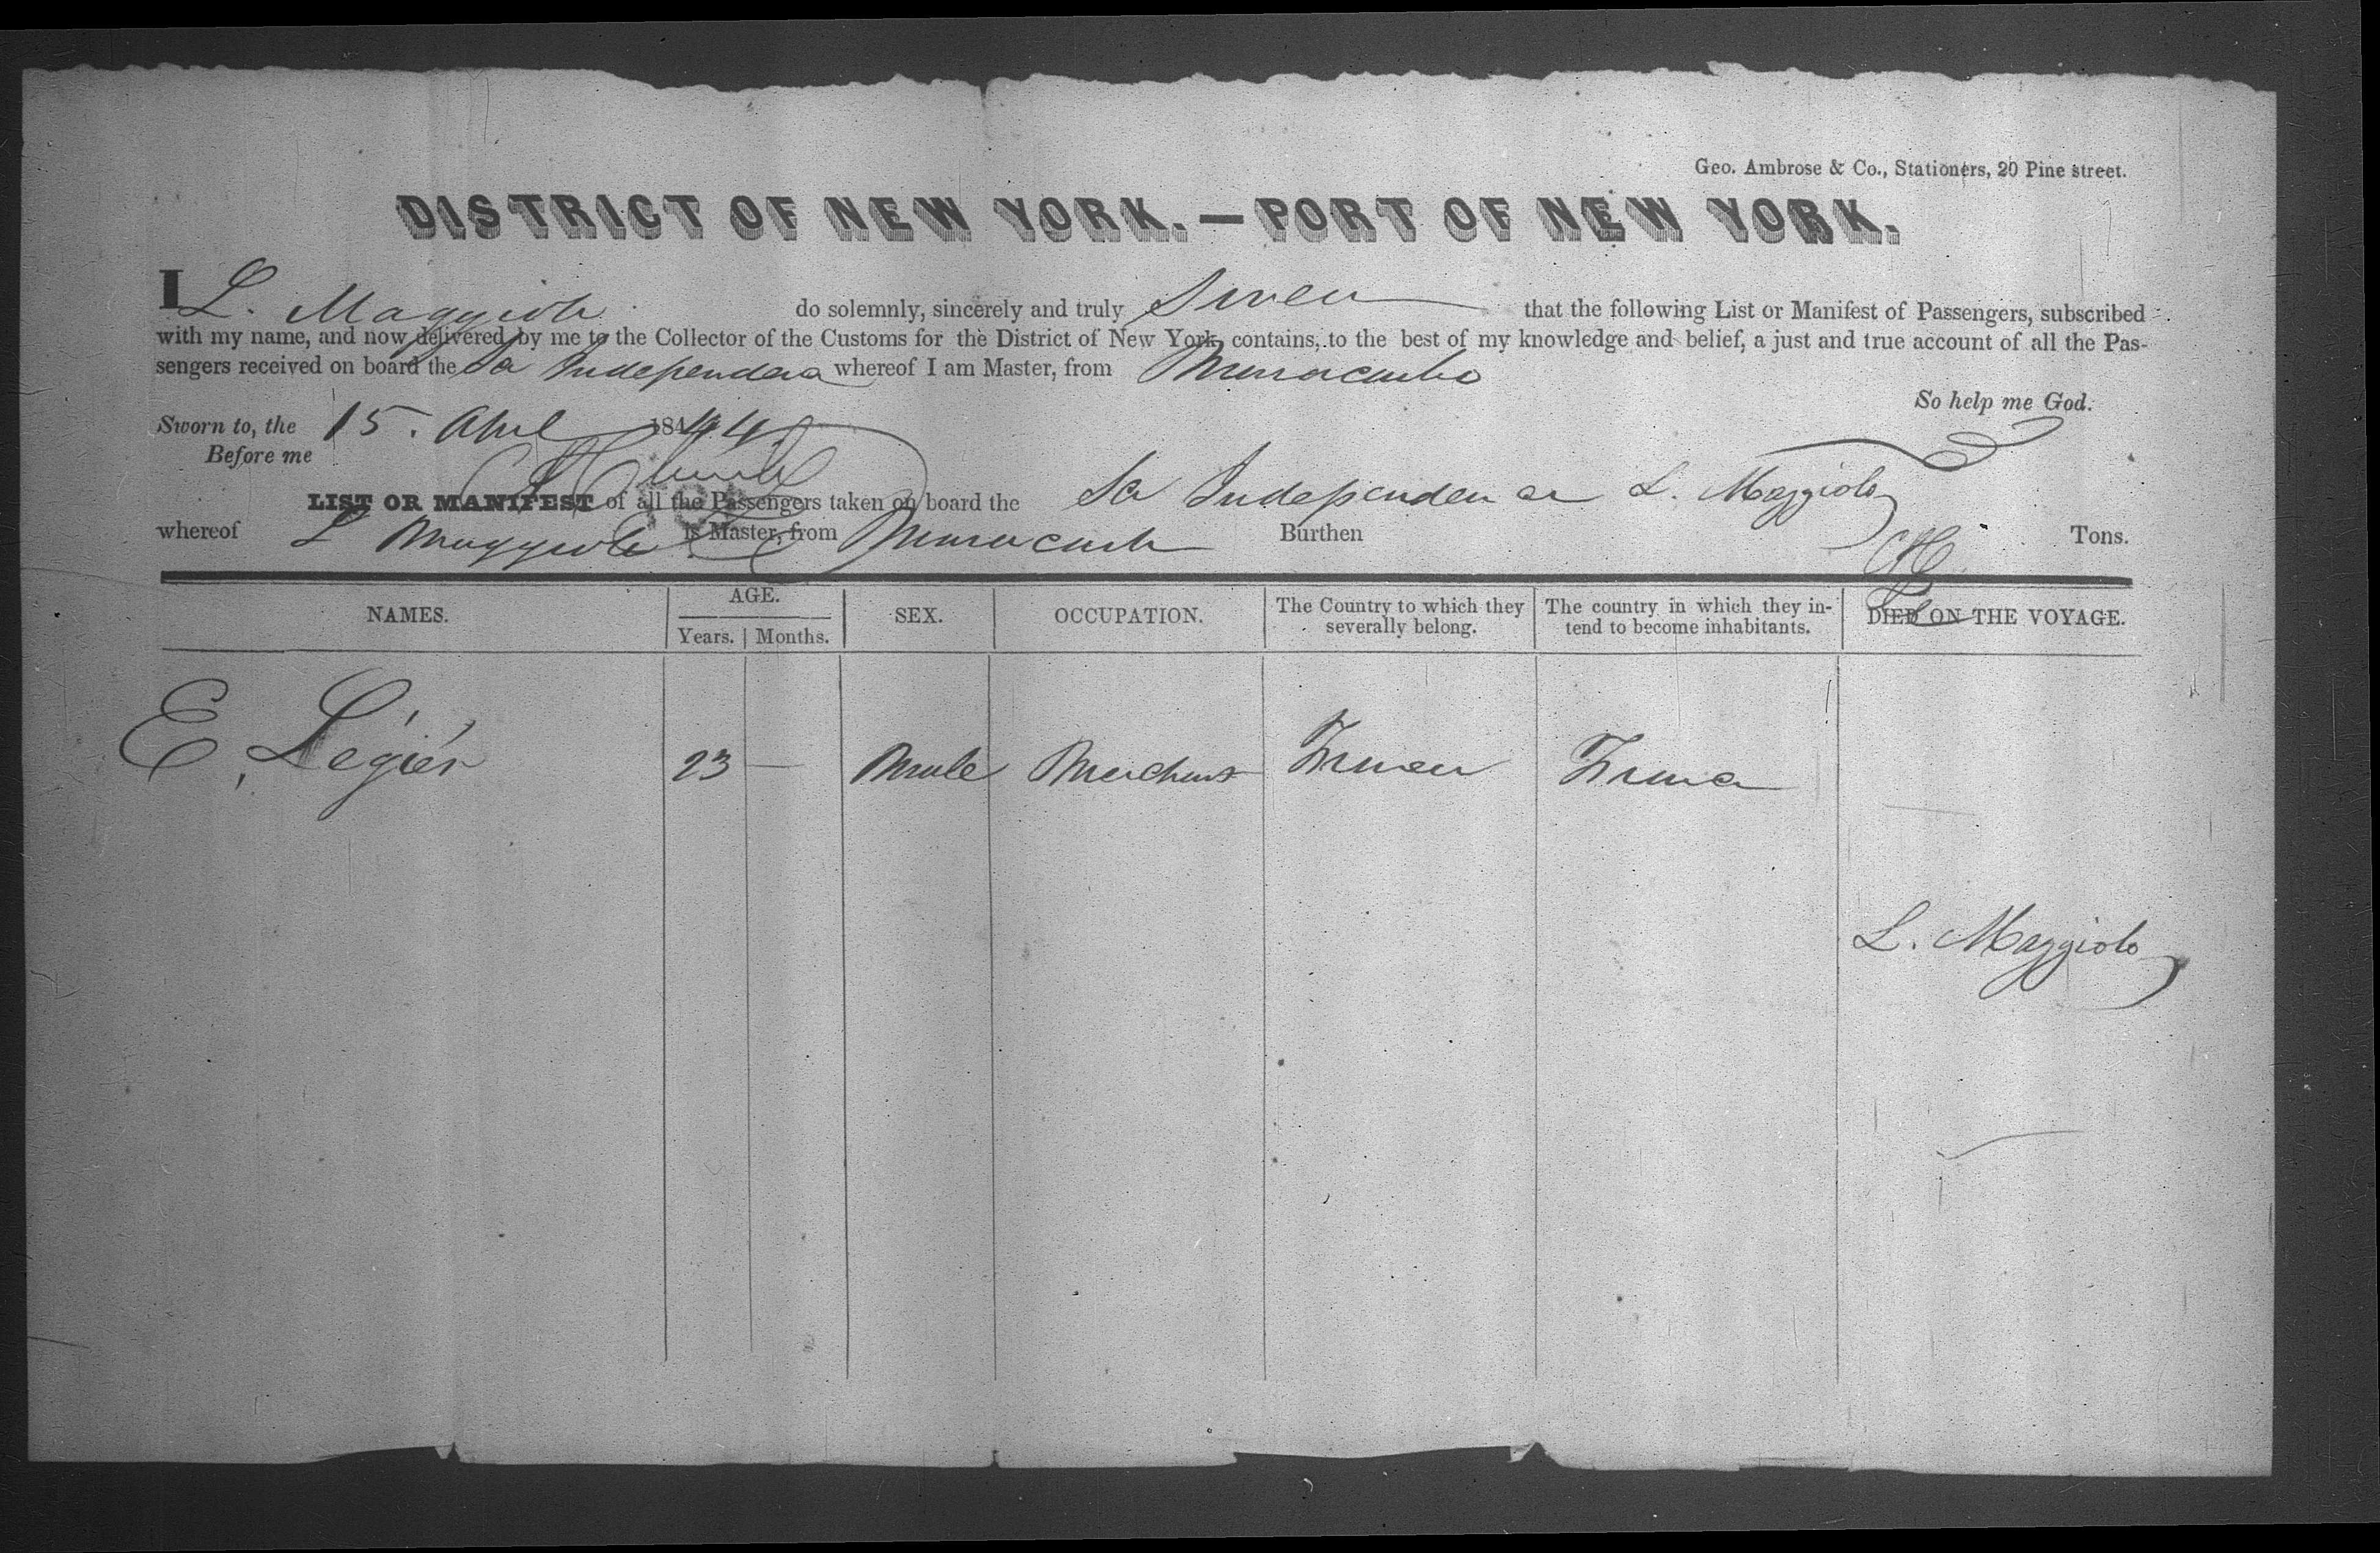 Geo. Ambrose & Co., Stationers, 20 Pine street.
DISTRICT OF NEW YORK.—PORT OF NEW YORK.
I L. Maggiolo do solemnly, sincerely and truly Swear that the following List or Manifest of Passengers, subscribed
with my name, and now delivered by me to the Collector of the Customs for the District of New York, contains, to the best of my knowledge and belief, a just and true account of all the Pas-
sengers received on board the La Independencia whereof I am Master, from Maracaibo
So help me God.
Sworn to, the 15. April 1844.
Before me
LIST OR MANIFEST of all the Passengers taken on board the La Independencia L. Maggiolo
whereof L Maggiolo is Master, from Maracaibo Burthen Tons.
NAMES. AGE. Years. Months. SEX. OCCUPATION. The Country to which they severally belong. The country in which they in-tend to become inhabitants. DIED ON THE VOYAGE.
E. Légiér 23 — Male Merchant France France
L. Maggiolo